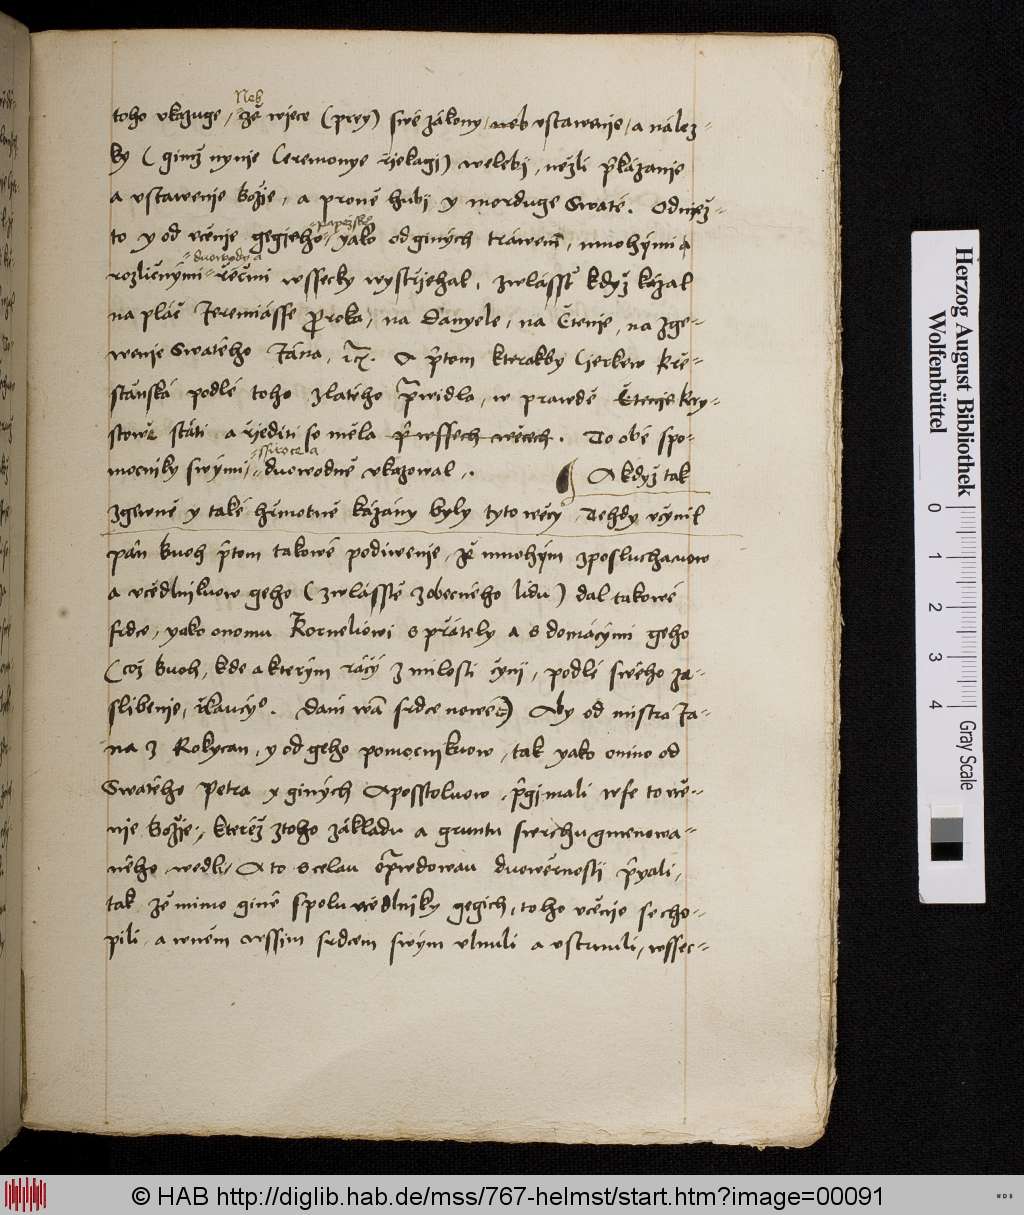 Nek
toho vkazuge, zě wiece (prey) swé zákony, neb vstawenie, a nález-
ky (gimž nynie Ceremonye řiekagi) welebij, nežli přikázanie
a vstawenie Božie, a proně hubij y morduge Swaté. Odniež-
papežské
to y od včenie gegieho, yako od giných tráwem, mnohými a
duowody a
rozličnými řečmi wssecky wystřiehal, zwlásstě když kázal
na pláč Jeremiásse Proroka, na Danyele, na Čtenie, na zge-
wenie Swatého Jána, A přitom kterakby Cierkew Kře-
stánská podlé toho zlatého prawidla, w prawdě Čtenie Kry-
stowě státi a řiediti se měla při wssech wěcech. To obé s po-
ssiroce a
mocniky swými, duowodně vkazowal. A když tak
zgewně y také hřmotně kázány byly tyto wěcy, Tehdy včinil
pán Buoh přitom takowé podiwenie, že mnohým z posluchačuow
a včedlnikuow geho (zwlásstě z obecného lidu) dal takowé
srdce, yako onomu Korneliowi s přátely a s domácými geho
(což Buoh, kde a kterým ráčý z milosti čynij, podlé swého za-
slibenie, řkaucý. Dám wám srdce nowé) Aby od mistra Ja-
na z Rokycan, y od geho pomocnikuow, tak yako onino od
Swatého Petra y giných Aposstoluow, přigimali w se to wě-
nie Božie, kteréž z toho základu a gruntu swrchu gmenowa-
ného wedli, A to s celau oprawdowau duowěrnostij přiyali,
tak že mimo giné spolu včedlniky gegich, toho včenie se cho-
pili, a w něm wssim srdcem swým vlnuli a vstrnuli, wssec-
Herzog August Bibliothek
Wolfenbüttel
0 1 2 3 4
Gray Scale
© HAB http://diglib.hab.de/mss/767-helmst/start.htm?image=00091
WDB